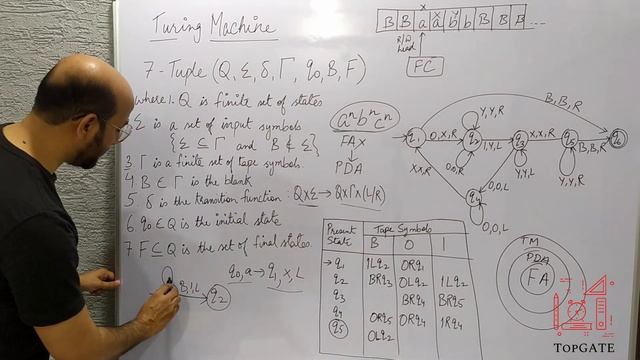 Turing Machine
B B a a b b B B B ...
R/W Head
FC
7-Tuple (Q, Σ, δ, Γ, q0, B, F)
where 1. Q is finite set of states
Σ is a set of input symbols
{Σ ⊆ Γ and B ∉ Σ}
3 Γ is a finite set of tape symbols.
4 B ∈ Γ is the blank
5 δ is the transition function: Q×Σ → Q×Γ×(L/R)
6. q0 ∈ Q is the initial state
7. F ⊆ Q is the set of final states.
q0, a → q1, x, L
B, 1, L
q2
aⁿbⁿcⁿ
FA x
PDA
B, B, R
Y,Y,R
q1
0,X,R
q2
1,Y,L
q3
X,X,R
q5
B,B,R
q6
X,X,R
0,0,R
Y,Y,L
Y,Y,R
0,0,L
q4
0,0,L
Present State
Tape Symbols
B 0 1
→q1 1Lq2 0Rq1
q2 BRq3 0Lq2 1Lq2
q3 BRq4 BRq5
q4 0Rq5 0Rq4 1Rq4
q5 0Lq2
TM
PDA
FA
TOPGATE